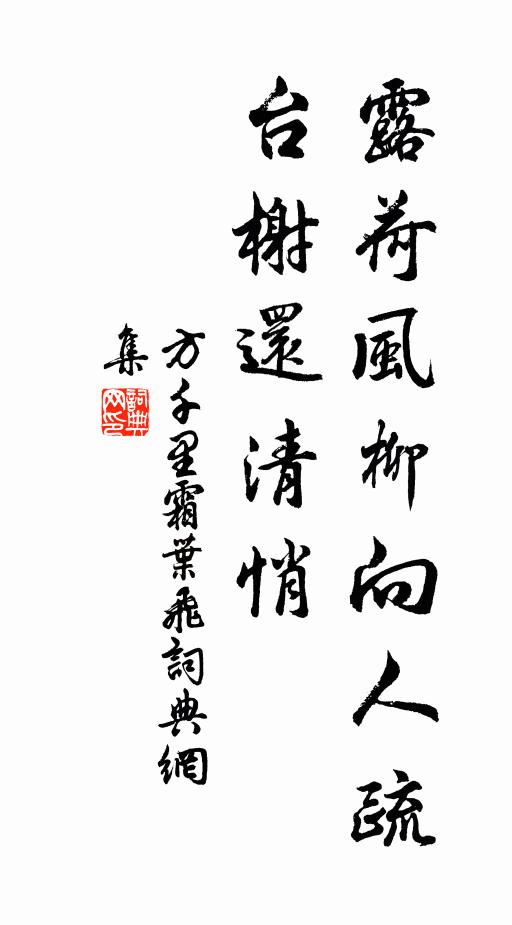 露荷風柳向人疏
台榭還清悄
方千里霜葉飛詞典網
集
詞典
网印